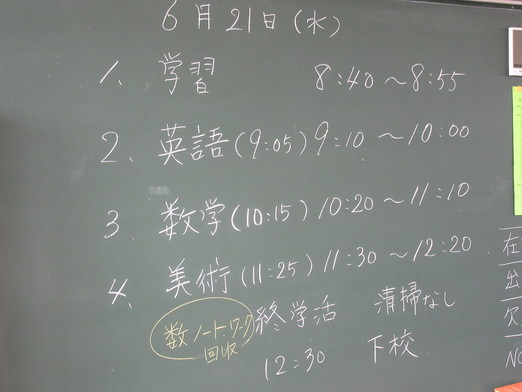 6月21日(水)
1. 学習 8:40～8:55
2. 英語(9:05) 9:10～10:00
3. 数学(10:15) 10:20～11:10
4. 美術(11:25) 11:30～12:20
終学活 清掃なし
数 ノート・ワーク
回収
12:30 下校
在
出
欠
NO